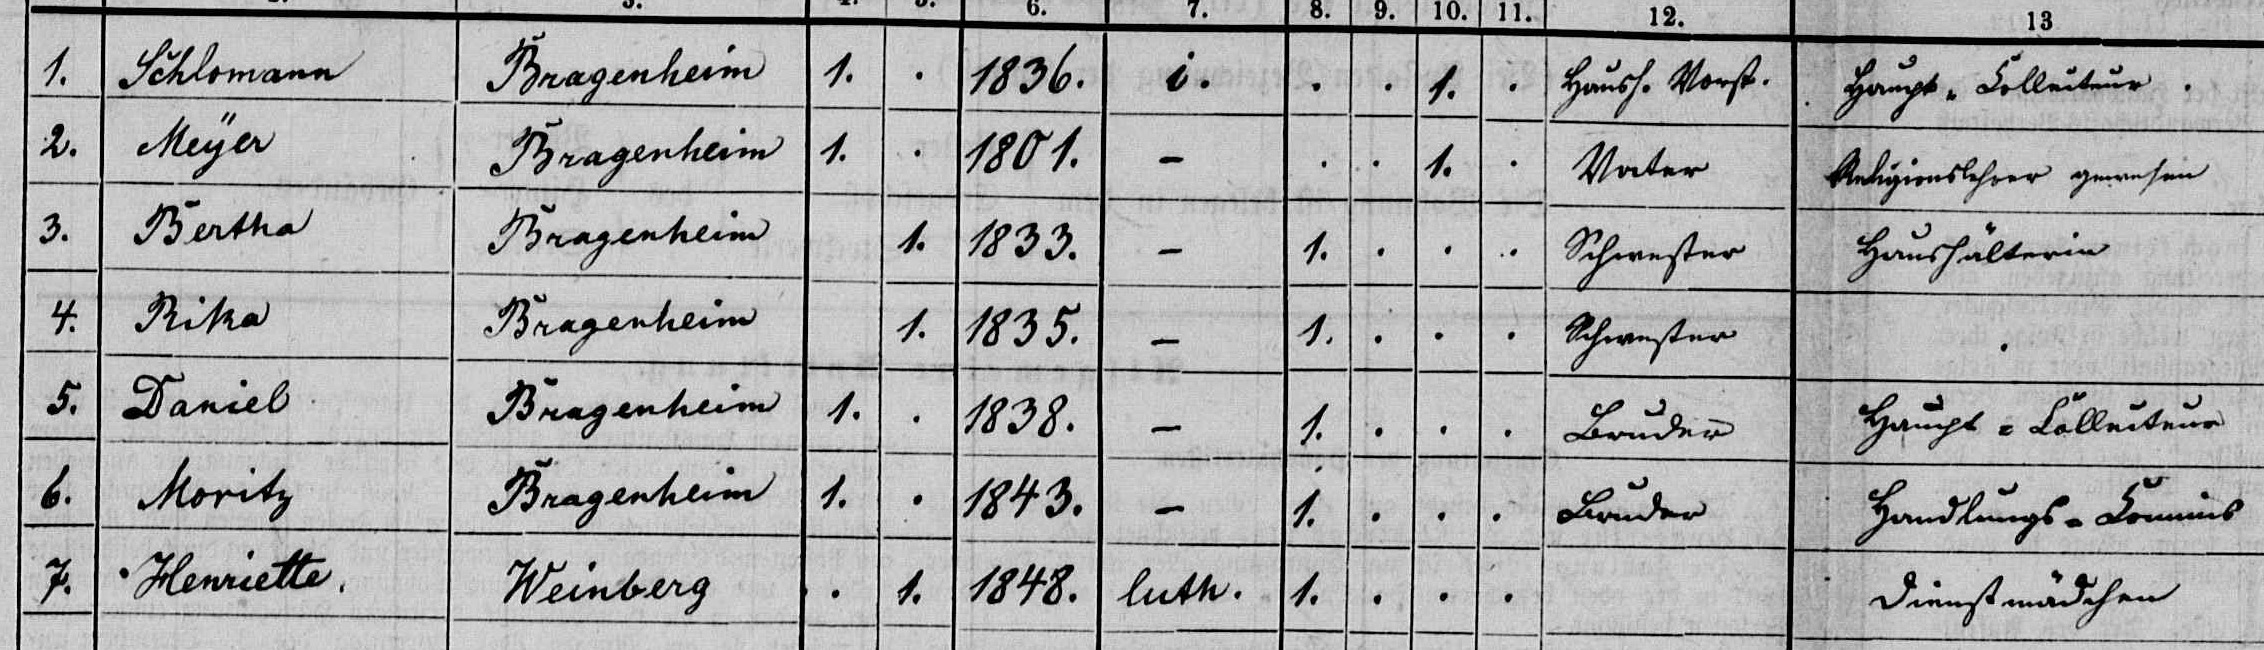 2. 3. 4. 5. 6. 7. 8. 9. 10. 11. 12. 13
1. Schlomann Bragenheim 1. . 1836. i. . . 1. . Haush. Vorst. Haupt-Collecteur.
2. Meÿer Bragenheim 1. . 1801. – . . 1. . Vater Religionslehrer gewesen
3. Bertha Bragenheim 1. 1833. – 1. . . . Schwester Haushälterin
4. Rika Bragenheim 1. 1835. – 1. . . . Schwester .
5. Daniel Bragenheim 1. . 1838. – 1. . . . Bruder Haupt-Collecteur
6. Moritz Bragenheim 1. . 1843. – 1. . . . Bruder Handlungs-Commis
7. Henriette. Weinberg . 1. 1848. luth. 1. . . . Dienstmädchen